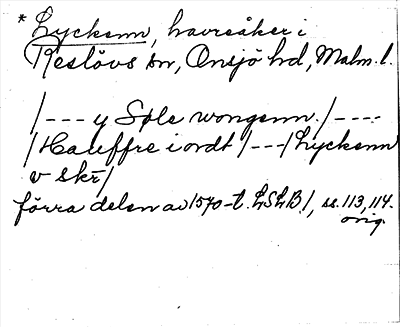 * Lyckenn, havreåker i
Reslövs sn, Onsjö hd, Malm. l.
/--- y Søle wongenn. /----
/Hauffre iordt /---/Lyckenn
v skr/
förra delen av 1570-t. LSLB/, ss. 113, 114.
orig.